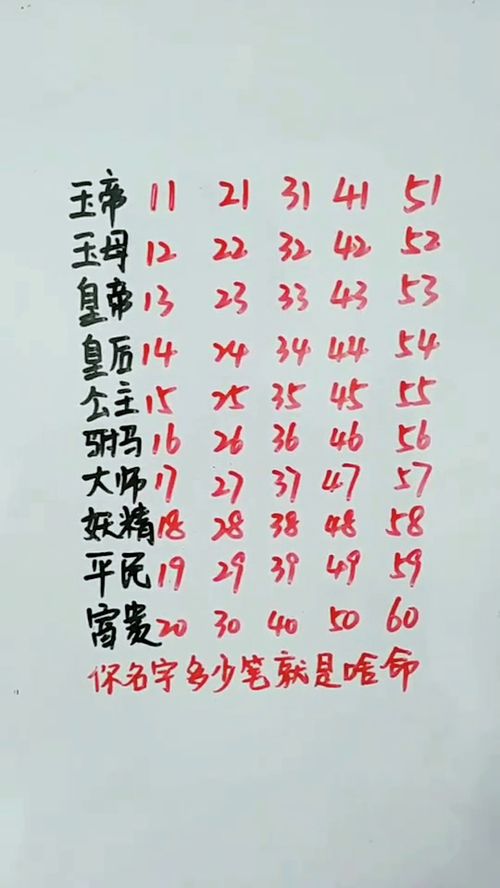 玉帝 11 21 31 41 51
玉母 12 22 32 42 52
皇帝 13 23 33 43 53
皇后 14 24 34 44 54
公主 15 25 35 45 55
驸马 16 26 36 46 56
大师 17 27 37 47 57
妖精 18 28 38 48 58
平民 19 29 39 49 59
富贵 20 30 40 50 60
你名字多少笔就是啥命